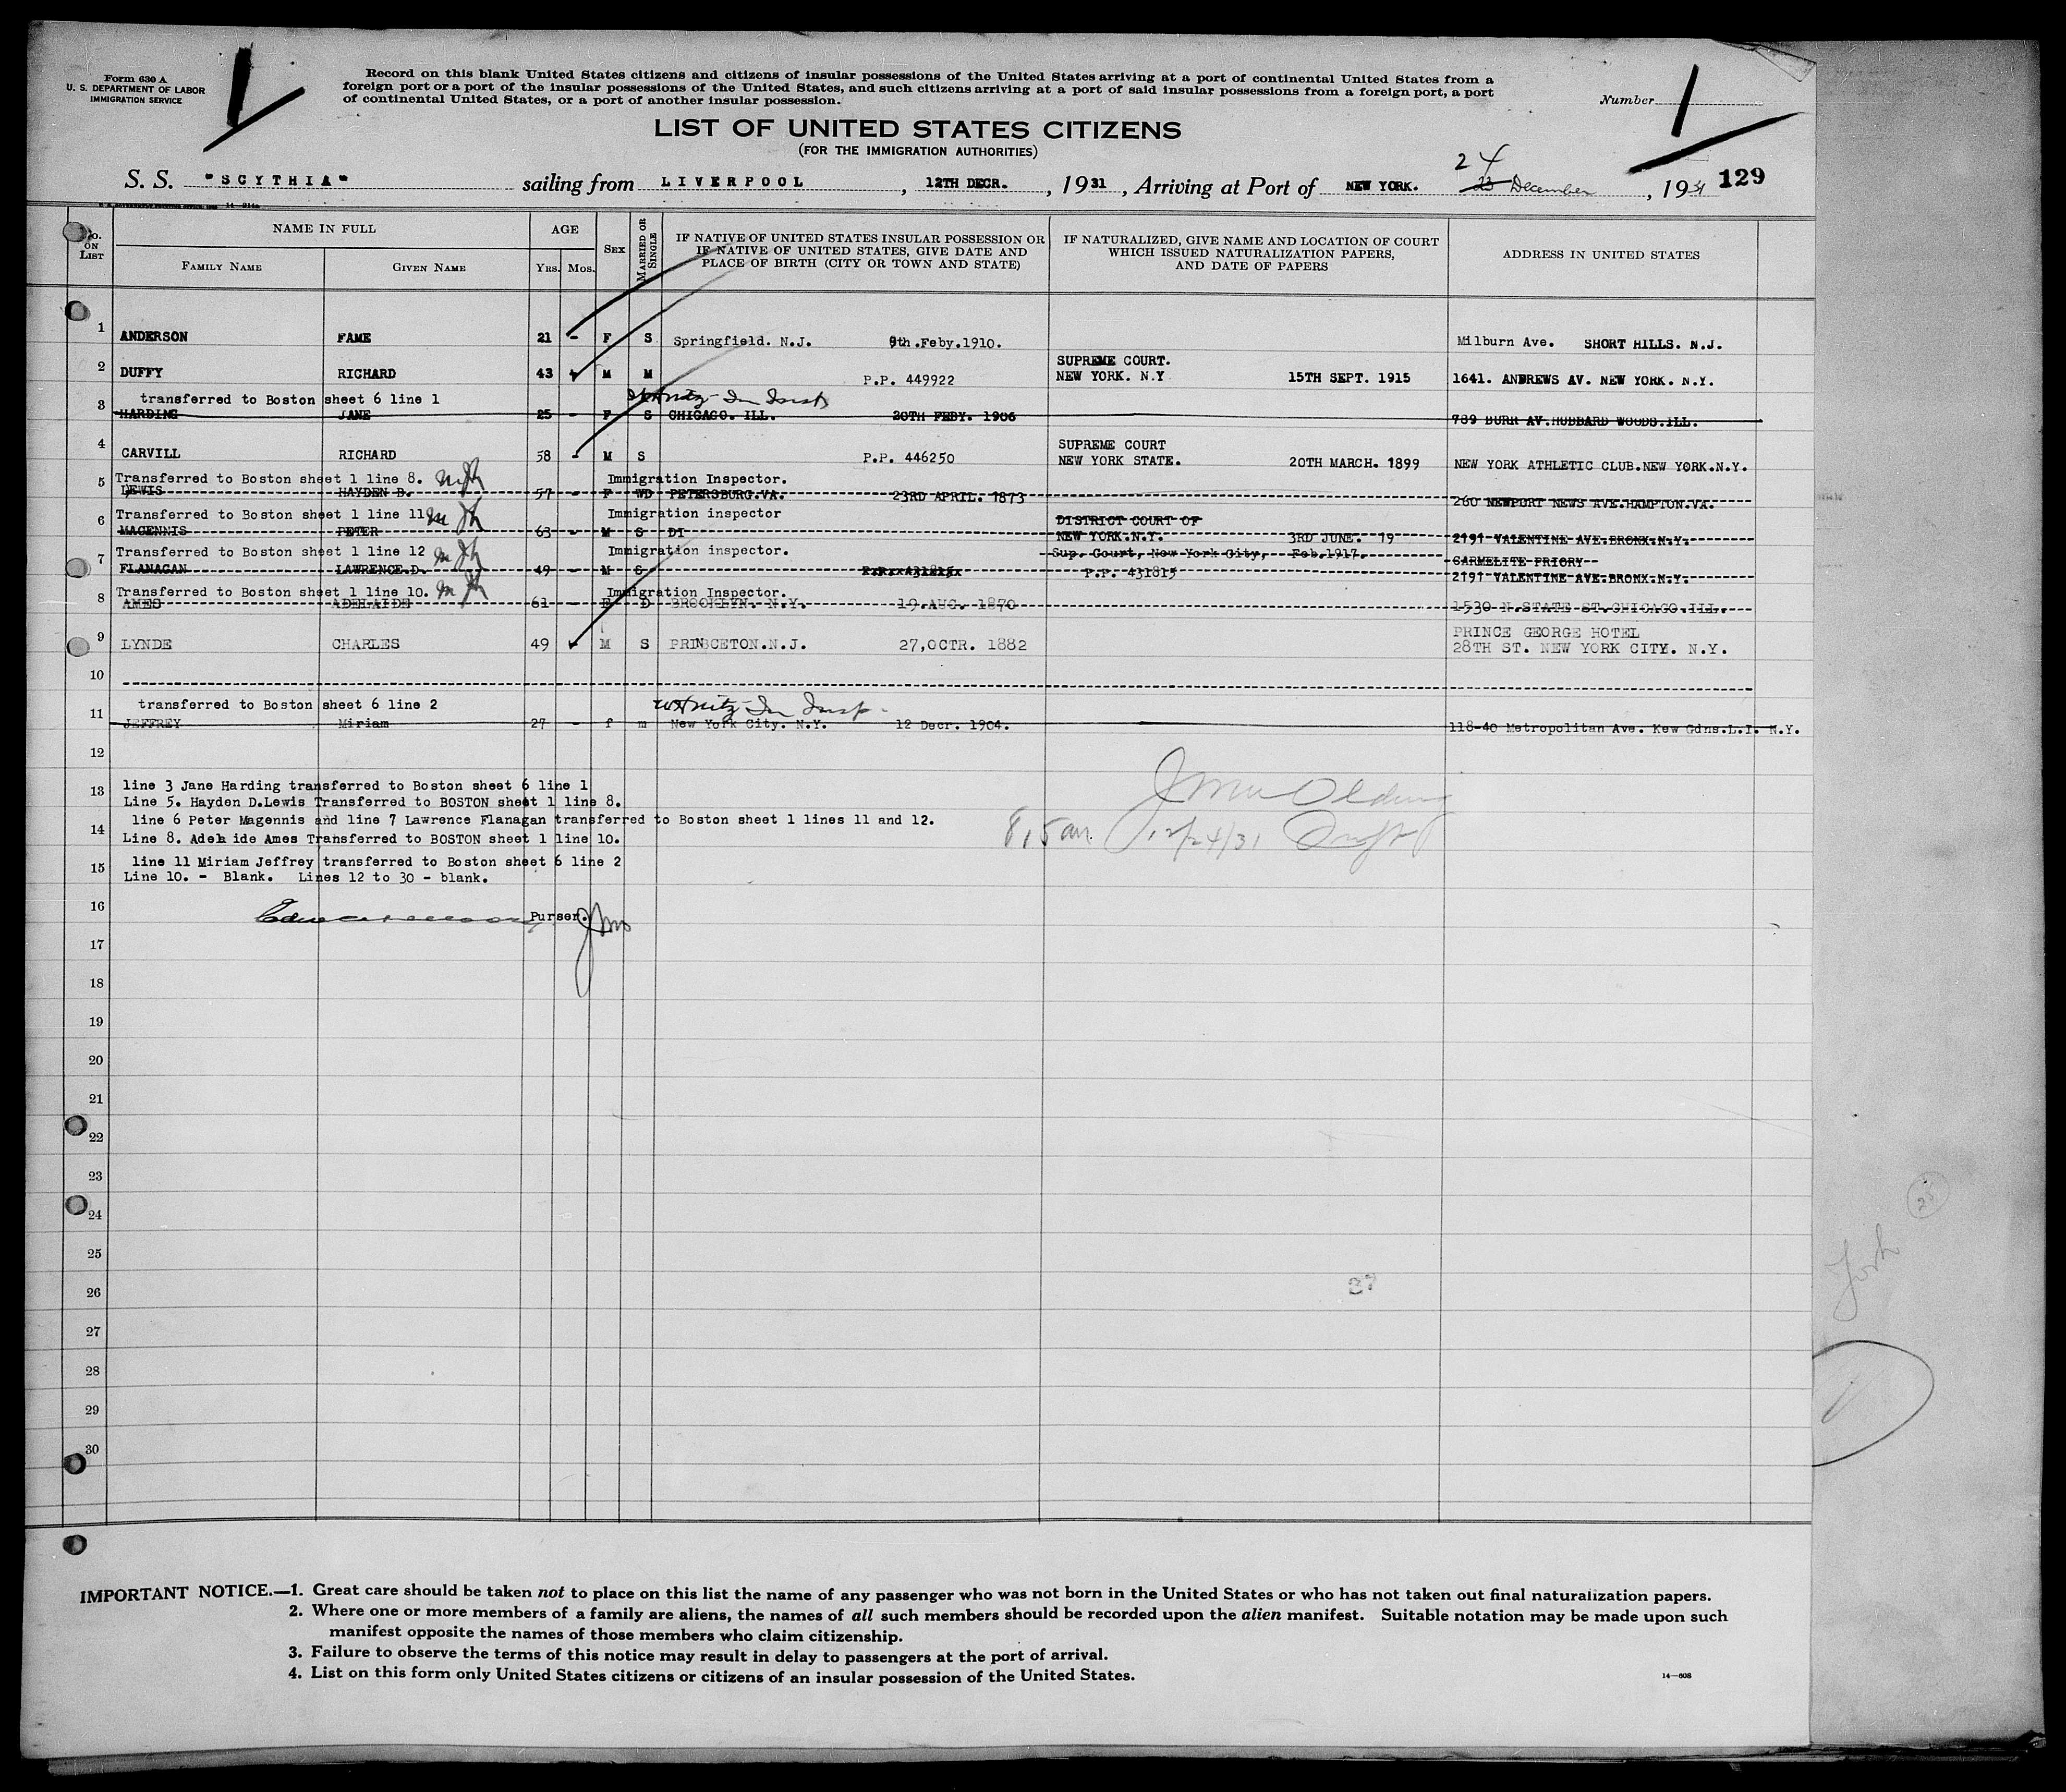 Form 630 A
U. S. DEPARTMENT OF LABOR
IMMIGRATION SERVICE
Record on this blank United States citizens and citizens of insular possessions of the United States arriving at a port of continental United States from a
foreign port or a port of the insular possessions of the United States, and such citizens arriving at a port of said insular possessions from a foreign port, a port
of continental United States, or a port of another insular possession.
Number 1
LIST OF UNITED STATES CITIZENS
(FOR THE IMMIGRATION AUTHORITIES)
24
S. S. "SCYTHIA" sailing from LIVERPOOL, 12TH DECR., 1931, Arriving at Port of NEW YORK. 23 December, 1931 129
No. ON LIST
NAME IN FULL
FAMILY NAME GIVEN NAME
AGE
YRS. MOS.
SEX
MARRIED OR SINGLE
IF NATIVE OF UNITED STATES INSULAR POSSESSION OR
IF NATIVE OF UNITED STATES, GIVE DATE AND
PLACE OF BIRTH (CITY OR TOWN AND STATE)
IF NATURALIZED, GIVE NAME AND LOCATION OF COURT
WHICH ISSUED NATURALIZATION PAPERS,
AND DATE OF PAPERS
ADDRESS IN UNITED STATES
1 ANDERSON FAME 21 - F S Springfield. N.J. 9th.Feby.1910. Milburn Ave. SHORT HILLS. N.J.
SUPREME COURT.
2 DUFFY RICHARD 43 - M M P.P. 449922 NEW YORK. N.Y 15TH SEPT. 1915 1641. ANDREWS AV. NEW YORK. N.Y.
transferred to Boston sheet 6 line 1
3 HARDING JANE 25 - F S CHICAGO. ILL. 20TH FEBY. 1906 789 BURR AV.HUBBARD WOODS.ILL.
SUPREME COURT
4 CARVILL RICHARD 58 - M S P.P. 446250 NEW YORK STATE. 20TH MARCH. 1899 NEW YORK ATHLETIC CLUB.NEW YORK.N.Y.
Transferred to Boston sheet 1 line 8. Immigration Inspector.
5 LEWIS HAYDEN D. 57 - F WD PETERSBURG.VA. 23RD APRIL. 1873 260 NEWPORT NEWS AVE.HAMPTON.VA.
Transferred to Boston sheet 1 line 11 Immigration inspector
DISTRICT COURT OF
6 MAGENNIS PETER 63 - M S DI NEW YORK.N.Y. 3RD JUNE. 19 2191 VALENTINE AVE.BRONX.N.Y.
Transferred to Boston sheet 1 line 12 Immigration inspector. Sup. Court, New York City, Feb.1917.
CARMELITE PRIORY
7 FLANAGAN LAWRENCE.D. 49 - M S P.P. 431815 2191 VALENTINE AVE.BRONX.N.Y.
Transferred to Boston sheet 1 line 10. Immigration Inspector.
8 AMES ADELAIDE 61 - F D BROOKLYN. N.Y. 19.AUG. 1870 1530 N.STATE ST.CHICAGO.ILL.
PRINCE GEORGE HOTEL
9 LYNDE CHARLES 49 M S PRINCETON.N.J. 27,OCTR. 1882 28TH ST. NEW YORK CITY. N.Y.
10
transferred to Boston sheet 6 line 2
11 JEFFREY Miriam 27 - f m New York City. N.Y. 12 Decr. 1904. 118-40 Metropolitan Ave. Kew Gdns.L.I. N.Y.
12
line 3 Jane Harding transferred to Boston sheet 6 line 1
13
Line 5. Hayden D.Lewis Transferred to BOSTON sheet 1 line 8.
line 6 Peter Magennis and line 7 Lawrence Flanagan transferred to Boston sheet 1 lines 11 and 12.
14
Line 8. Adela ide Ames Transferred to BOSTON sheet 1 line 10.
12/24/31
line 11 Miriam Jeffrey transferred to Boston sheet 6 line 2
15
Line 10. - Blank. Lines 12 to 30 - blank.
16 Purser.
17
18
19
20
21
22
23
24
25
26
37
27
28
29
30
IMPORTANT NOTICE.—1. Great care should be taken not to place on this list the name of any passenger who was not born in the United States or who has not taken out final naturalization papers.
2. Where one or more members of a family are aliens, the names of all such members should be recorded upon the alien manifest. Suitable notation may be made upon such
manifest opposite the names of those members who claim citizenship.
3. Failure to observe the terms of this notice may result in delay to passengers at the port of arrival.
4. List on this form only United States citizens or citizens of an insular possession of the United States.
14—608